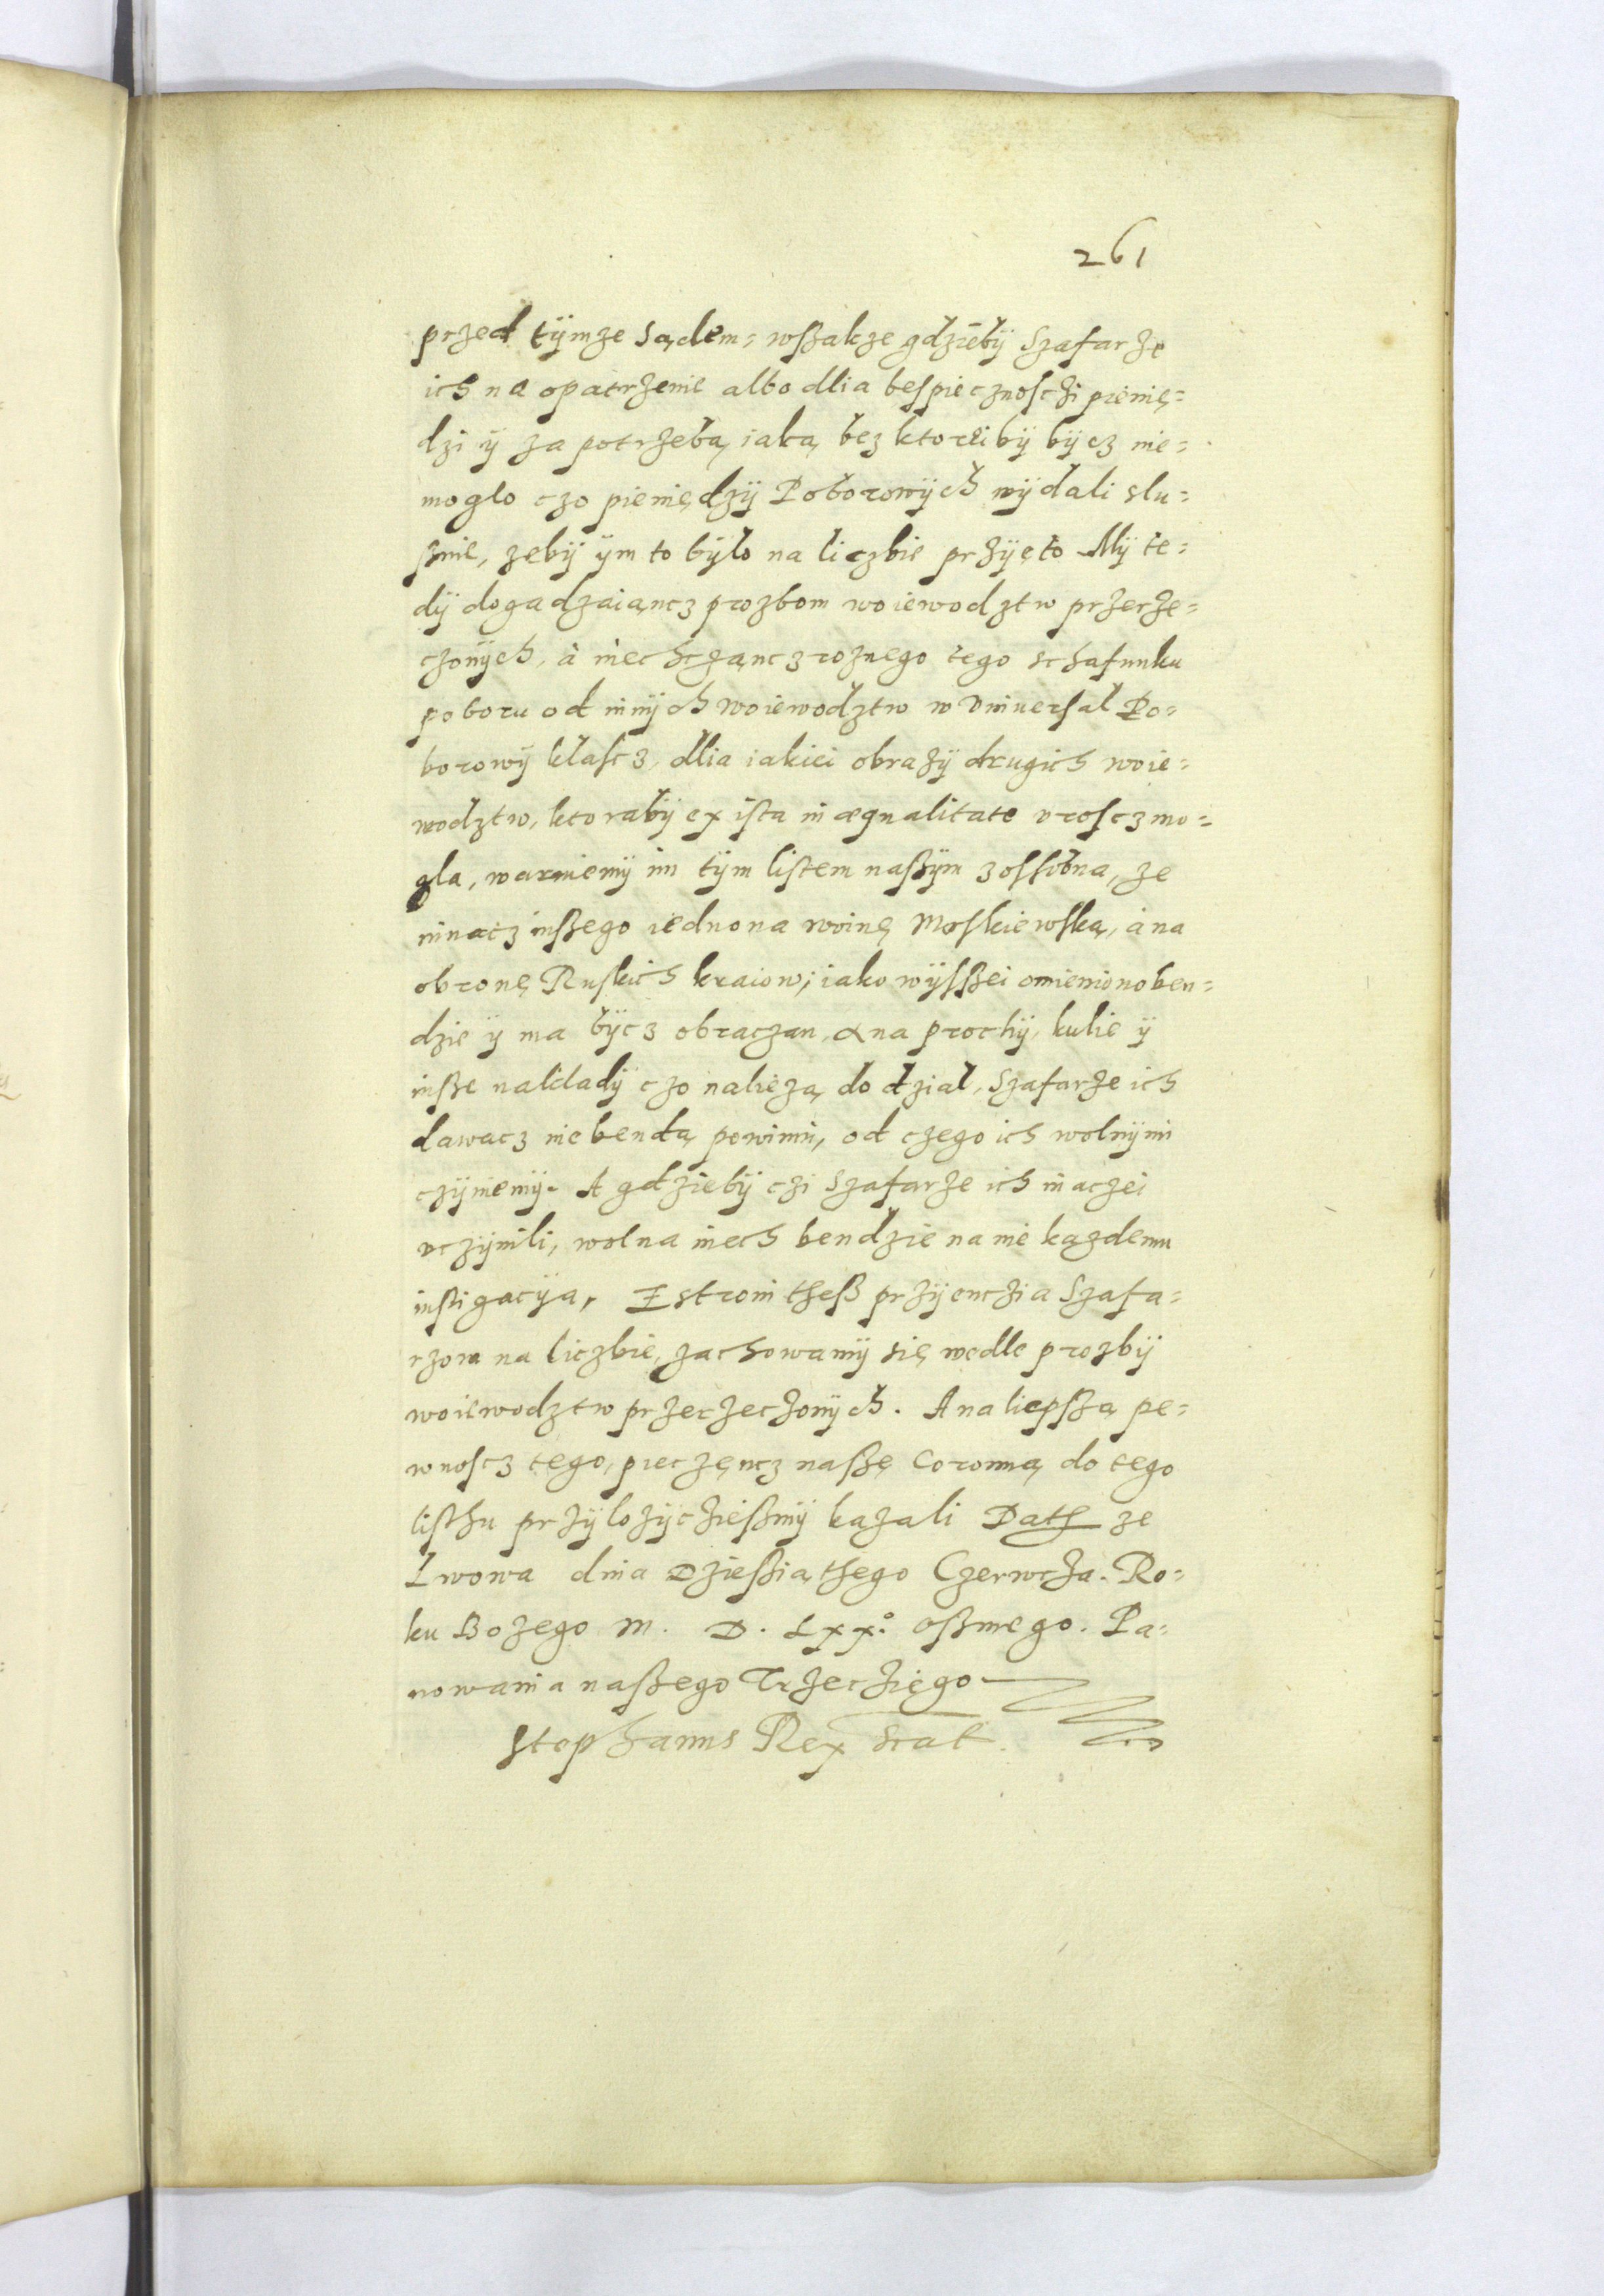 261
przed tÿmze Sądem= wßakze gdziebÿ Szafarze
ich na opatrzenie albo dlia bespiecznosczi pienię=
dzi ÿ za potrzebą iaką bez ktoreibÿ bÿcz nie=
moglo czo pieniędzÿ Poborowÿch wÿdali slu=
ßnie, zebÿ ÿm to bÿlo na liczbie przÿęto Mÿ te=
dÿ dogadzaiancz prozbom woiewodztw przerze=
czonÿch, à niechcząncz roznego tego schafunku
poboru od innÿch woiewodztw w Vniuersal Po=
borowÿ klascz, dlia iakiei obrazÿ drugich woie=
wodztw, ktorabÿ ex ista inæqualitate vroscz mo=
gla, waruiemÿ im tÿm listem naßÿm zossobna, ze
ninacz inßego iedno na woinę Moskiewską, à na
obronę Ruskich kraiow; iako wÿsßei omieniono ben=
dzie ÿ ma bÿcz obraczan, a na prochÿ, kulie ÿ
inße nakladÿ czo nalieza, do dzial, Szafarze ich
dawacz nie bendą powinni, od czego ich wolnÿmi
czÿniemÿ. A gdziebÿ czi Szafarze ich inaczei
vczÿnili, wolna niech bendzie na nie kazdemu
instigacÿa, Z stroni theß przÿenczia Szafa=
rzow na liczbie, zachowamÿ się wedle prozbÿ
woiewodztw przerzeczonÿch. A na liepszą pe=
wnoscz tego, pieczęncz naßę Coronną do tego
listhu przÿlozÿcziesmÿ kazali Dath ze
Lwowa dnia Dziesiąthego Czerwcza. Ro=
ku Bozego M. D. Lxx.° osmego. Pa=
nowania naßego Trzecziego
Stephanus Rex scat.